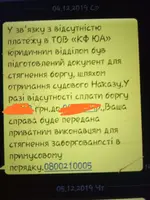 04.12.2019 Ср
У зв'язку з відсутністю
платежу в ТОВ «КФ ЮА»
юридичним відділом був
підготовлений документ для
стягнення боргу, шляхом
отримання судового Наказу.У
разі відсутності сплати боргу
грн.до Ваша
справа буде передана
приватним виконавцям для
стягнення заборгованості в
примусовому
порядку.0800210005
05.12.2019 Чт